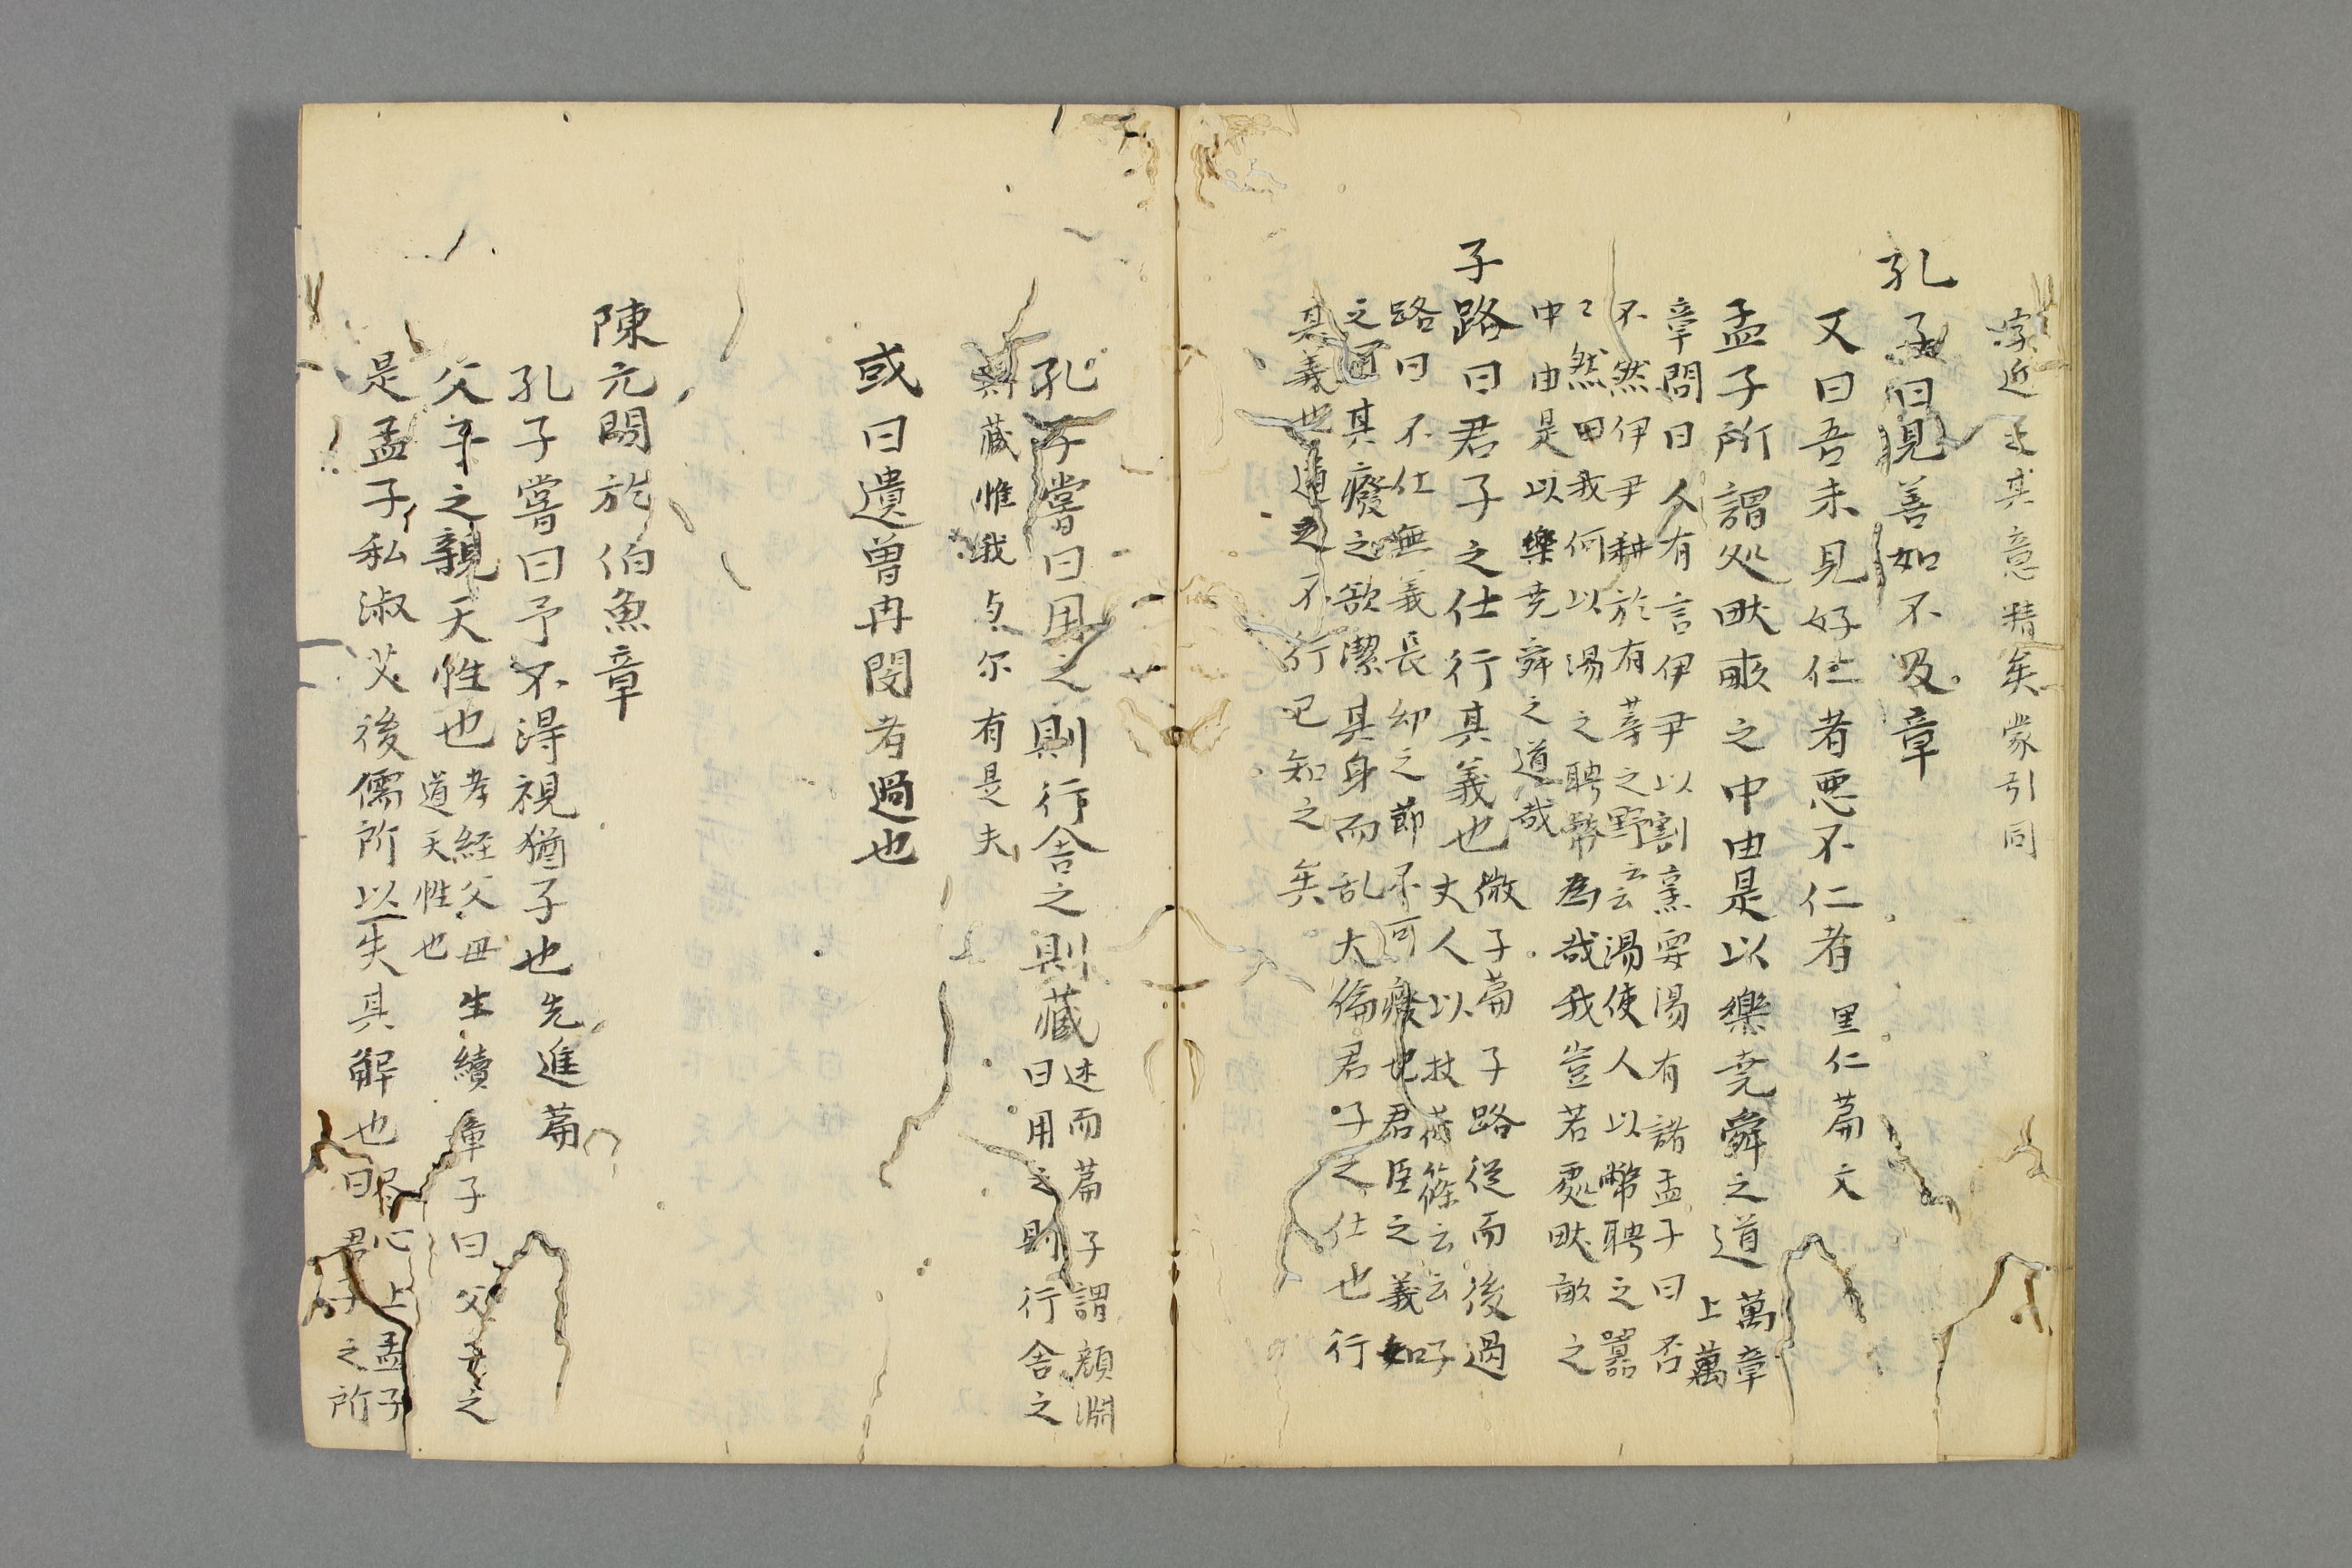 字近正其意精矣蒙引同
孔子曰見善如不及章
又曰吾未見好仁者悪不仁者 里仁篇文
孟子所謂処畎畝之中由是以樂尭舜之道 萬章上萬
章問曰人有言伊尹以割烹要湯有諸孟子曰否
不然伊尹耕於有莘之野云云湯使人以幣聘之囂
〻然曰我何以湯之聘幣為哉我豈若處畎畝之
中由是以樂尭舜之道哉
子路曰君子之仕行其義也 微子篇子路從而後遇
丈人以杖荷篠云云子
路曰不仕無義長幼之節不可癈也君臣之義如
之何其癈之欲潔其身而乱大倫君子之仕也行
其義也道之不行已知之矣
孔子嘗曰用之則行舎之則藏 述而篇子謂顔淵
曰用之則行舎之
則藏惟我与尓有是夫
或曰遺曽冉閔者過也
陳亢問於伯魚章
孔子嘗曰予不得視猶子也先進篇
父子之親天性也 孝経父母生續章子曰父子之
道天性也
是孟子私淑艾後儒所以失其解也 盡心上孟子
曰君子之所